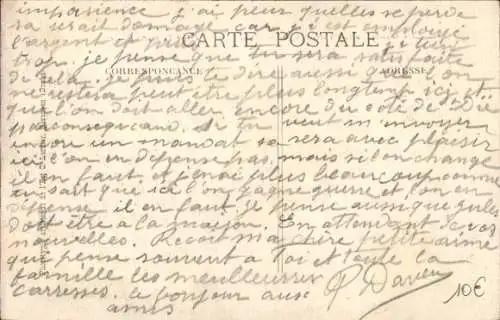 impasience j'ai peur quelles se perde
sa serait domage car j'ai employé
l'argent et
CARTE POSTALE
trop. je pense que tu sera satisfaite
de cela. je puis te dire aussi que l'on
CORRESPONCANCE
ADRESSE
restera peut être plus longtemp ici et
que l'on doit aller encore du coté de
par consequand. Si tu veut m'envoyer
encore un mandat sa sera avec plaisir
ici l'on en dépense pas. mais si l'on change
il en faut et j'en ai plus beaucoup comme
tu sait que ici l'on gagne guerre et l'on en
dépense il en faut je pense aussi que
doit être a la maison. En attendant de vos
nouvelles. Recoit ma chere petite aimé
que pense souvent a toi et toute la
famille les meulleurser
carresses. le bonjour aux
amis
10€